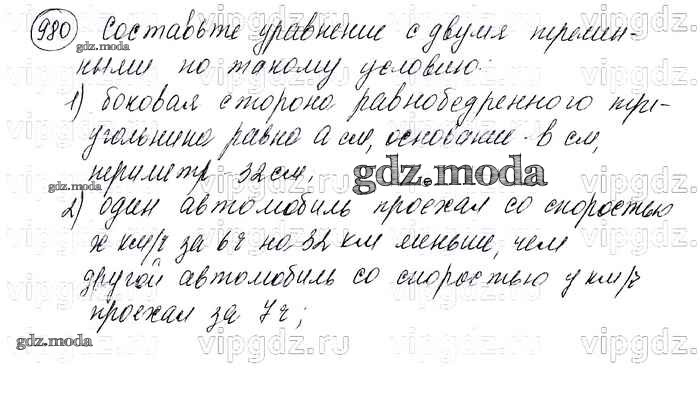 980 Составьте уравнение с двумя перемен-
ными по такому условию:
1) боковая сторона равнобедренного тре-
угольника равна a см, основание - b см,
периметр - 32 см;
2) один автомобиль проехал со скоростью
x км/ч за 6ч на 32 км меньше, чем
другой автомобиль со скоростью y км/ч
проехал за 7ч;
gdz.moda
gdz.moda
gdz.moda
gdz.moda
vipgdz.ru